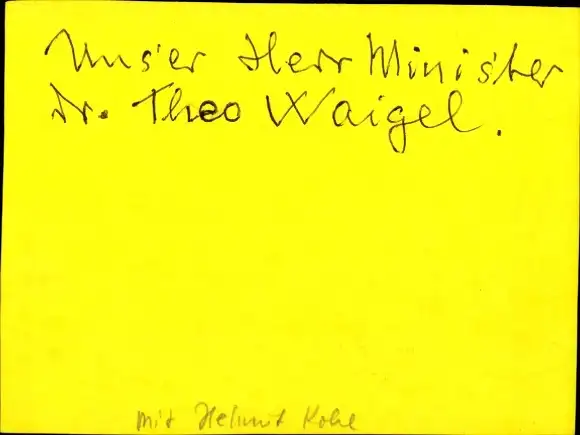 Unser Herr Minister
Dr. Theo Waigel.
mit Helmut Kohl